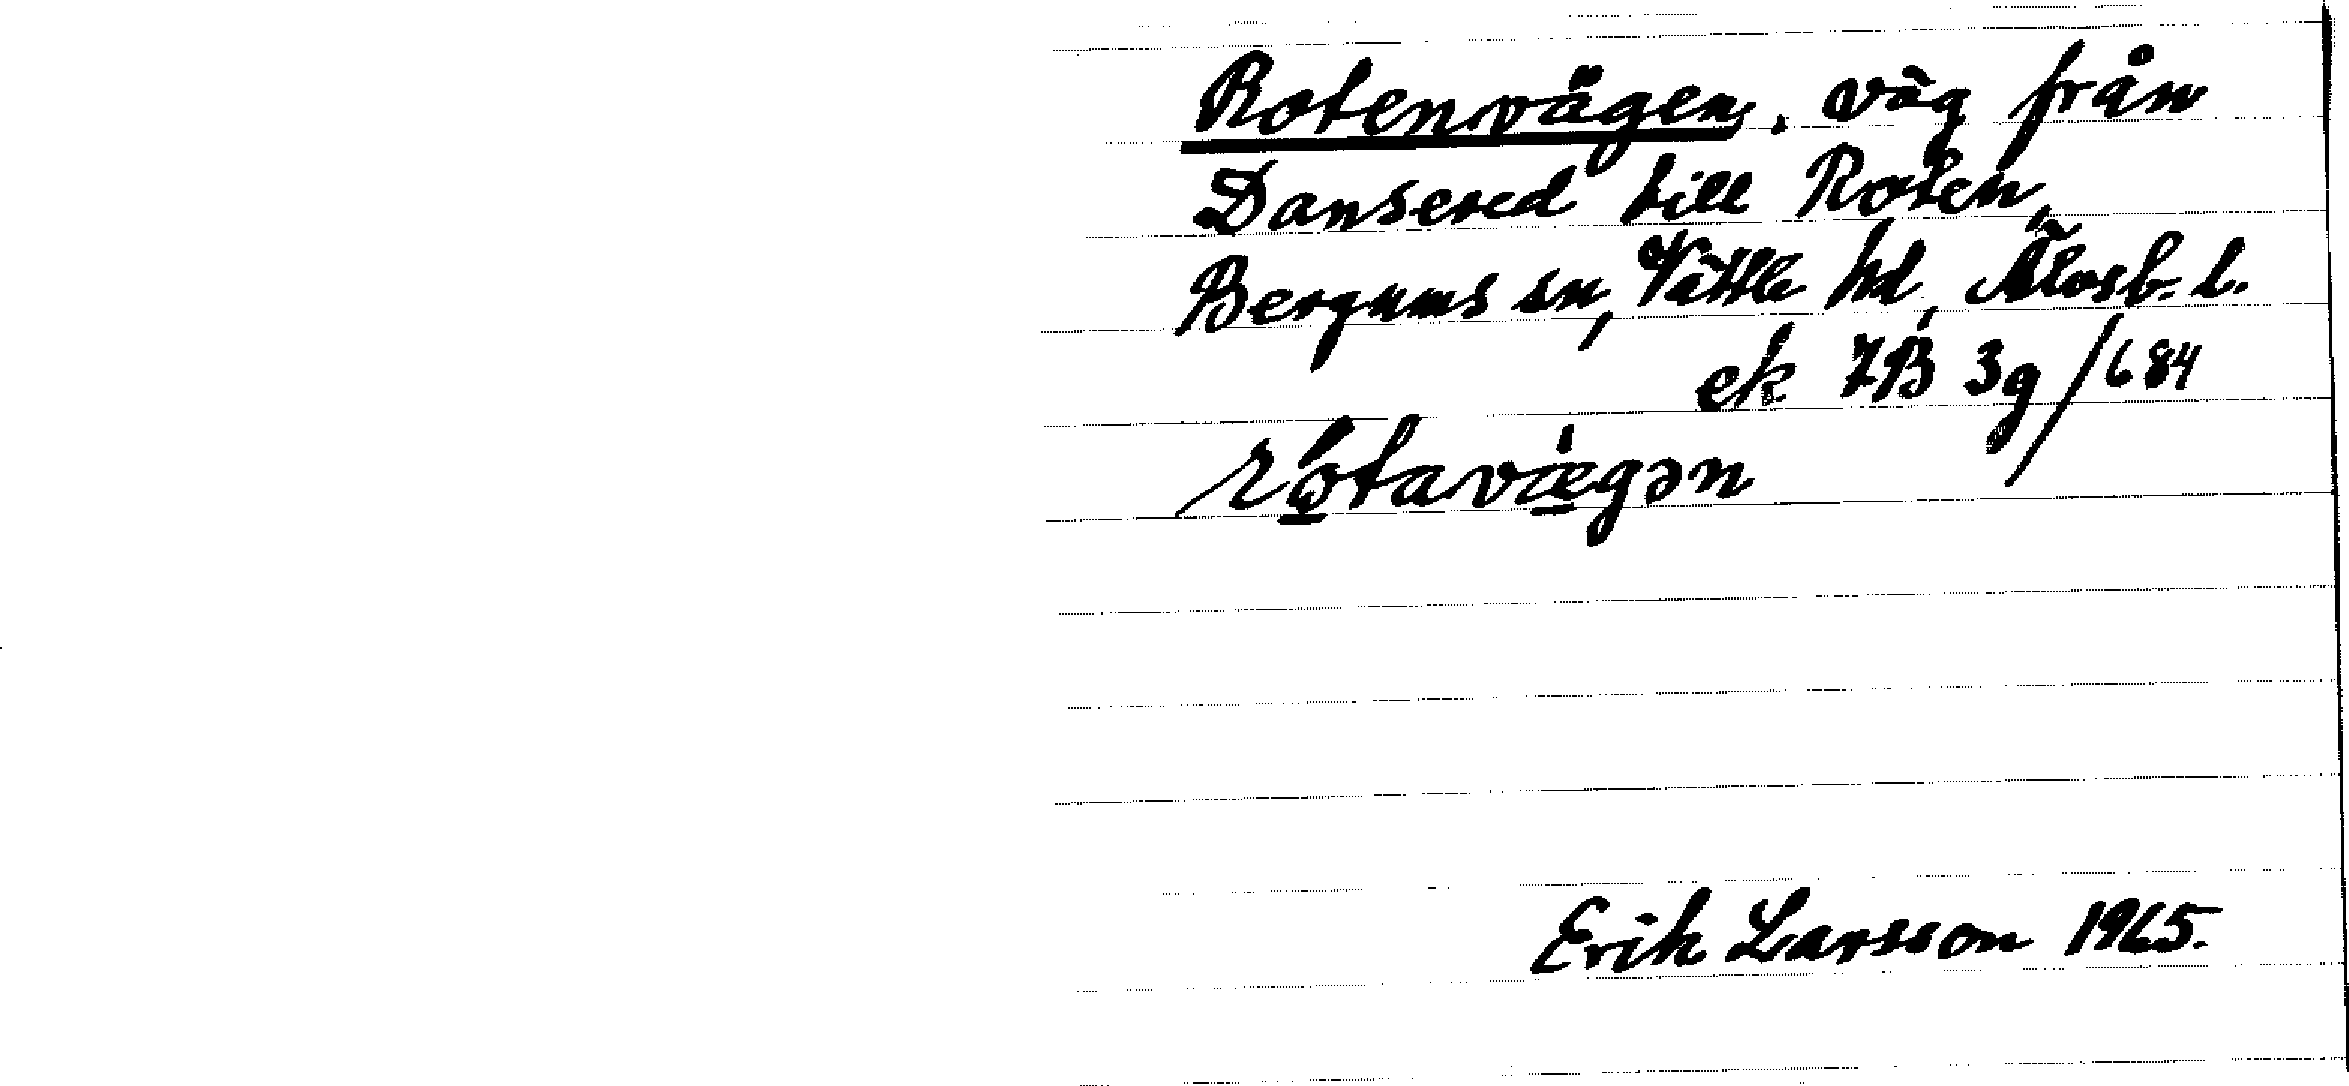 Rotenvägen, väg från
Dansered till Roten,
Bergums sn, Vättle hd, Älvsb. l.
ek 7B 3g/684
rǫ́tavǽgən
Erik Larsson 1965.